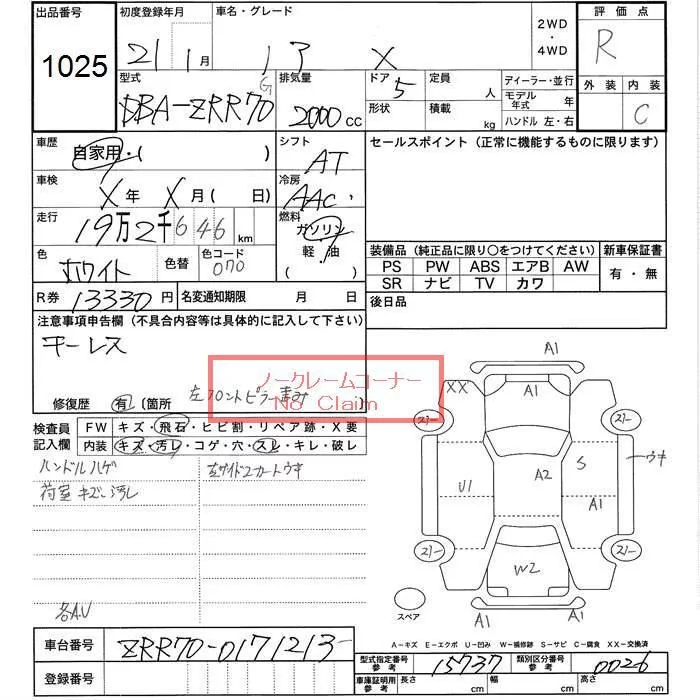 出品番号 初度登録年月 車名・グレード 2WD・4WD 評価点
1025 21 1月 13 X R
外装 内装 C
型式 DBA-ZRR70G 排気量 2000cc ドア 5 形状 定員 人 積載 kg ディーラー・並行 モデル年式 年 ハンドル 左・右
車歴 自家用・( ) シフト AT セールスポイント(正常に機能するものに限ります)
車検 X年 X月( 日) 冷房 AAC
走行 19万2千646km 燃料 ガソリン 軽・油 ( )
色 ホワイト 色替 色コード 070
装備品(純正品に限り○をつけてください) 新車保証書
PS PW ABS エアB AW 有・無
SR ナビ TV カワ
R券 13330円 名変通知期限 月 日 後日品
注意事項申告欄(不具合内容等は具体的に記入して下さい)
キーレス
ノークレームコーナー
No Claim
修復歴 有 〔箇所 左フロントピラー 〕
検査員記入欄 FW キズ・飛石・ヒビ割・リペア跡・X要
内装 キズ・汚レ・コゲ・穴・スレ・キレ・破レ
ハンドルハゲ 左サイドスカートウキ
荷室キズ、汚レ
各A.U
A1
XX A1
21- 21-
ウキ
U1 A2 S
A1
21- 21-
W2
スペア
A1 A1
A-キズ E-エクボ U-凹み W-補修跡 S-サビ C-腐食 XX-交換済
車台番号 ZRR70-0171213
型式指定番号 参考 15737 類別区分番号 参考 0026
登録番号
車庫証明用 参考 長さ cm 幅 cm 高さ cm